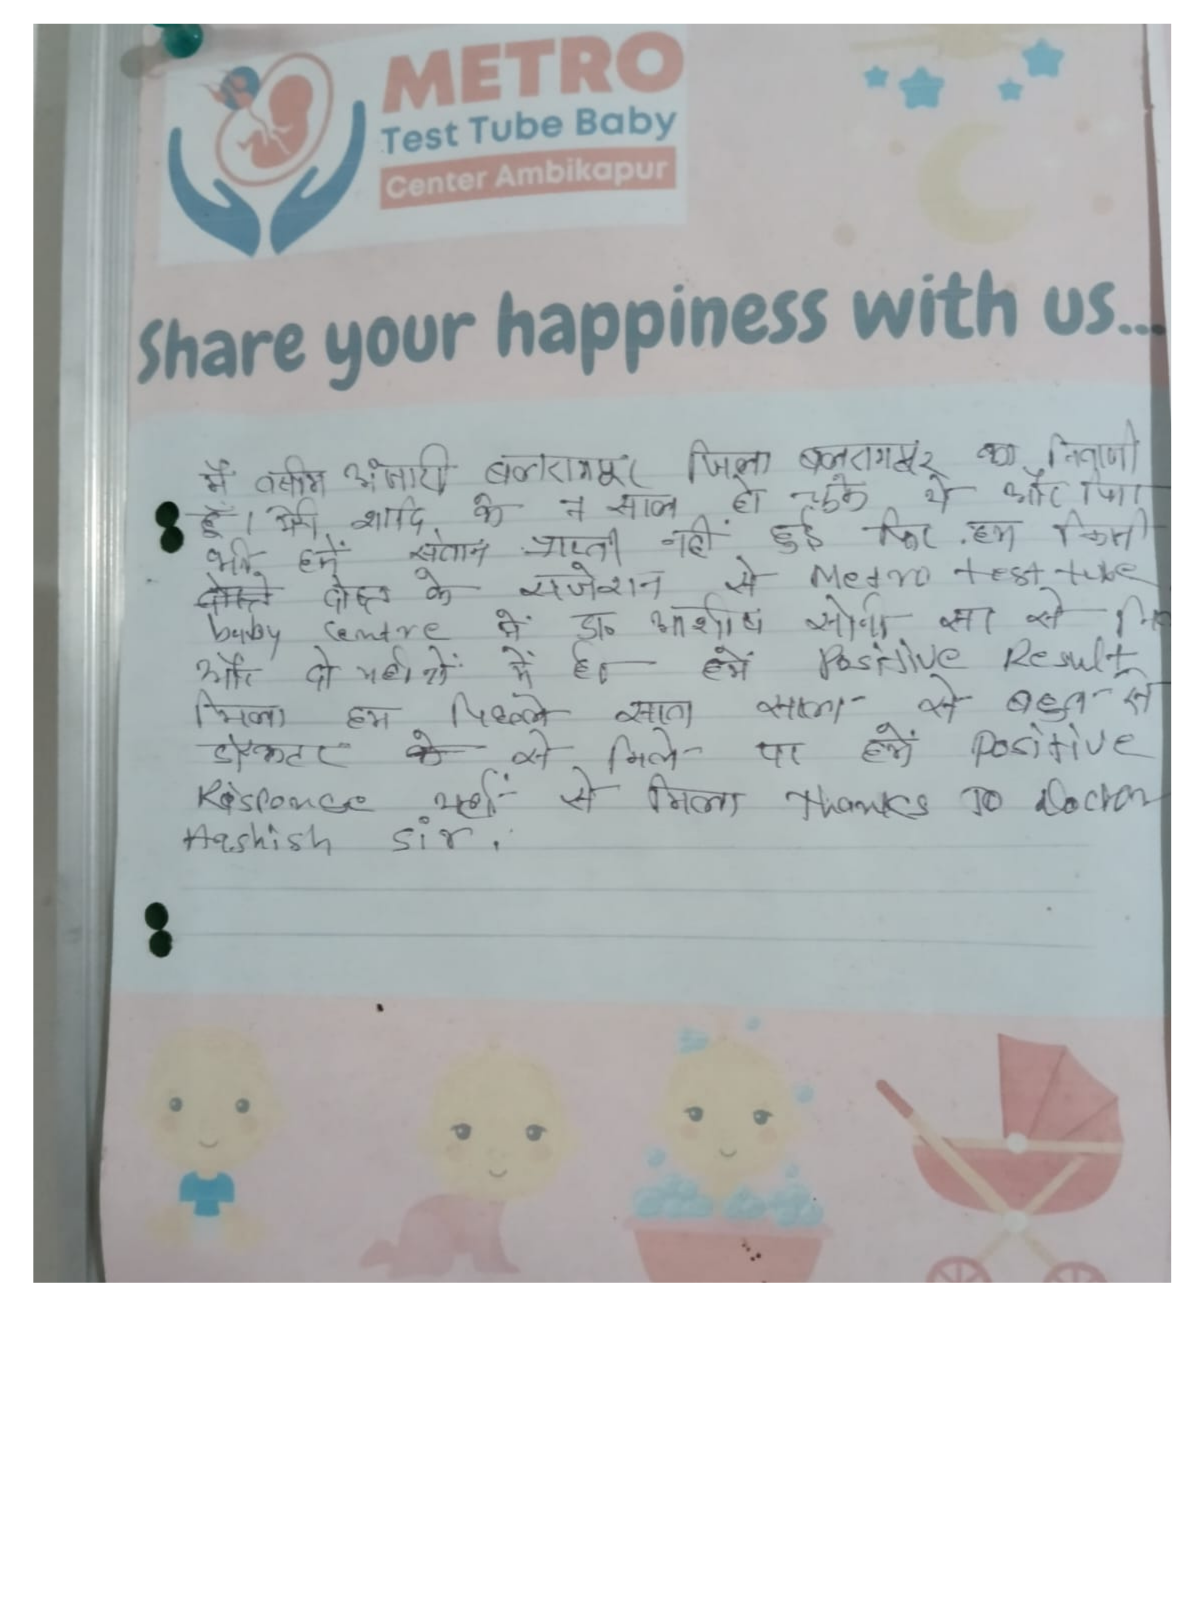 METRO
Test Tube Baby
Center Ambikapur
Share your happiness with us...
में वसीम अंसारी बलरामपुर जिला बलरामपुर का निवासी
हूँ। मेरी शादि के साल हो चुके थे और
भी हमें संतान प्राप्ती नहीं हुई फिर हम किसी
दोस्त के सजेशन से Metro test tube
baby Centre में डा० आशीष सोनी सर से
और दो महीनों में ही हमें Positive Result
मिला हम पिछले सात साल से बहुत से
डॉक्टर से मिले पर हमें Positive
Response यहाँ से मिला thanks To Doctor
Aashish Sir.